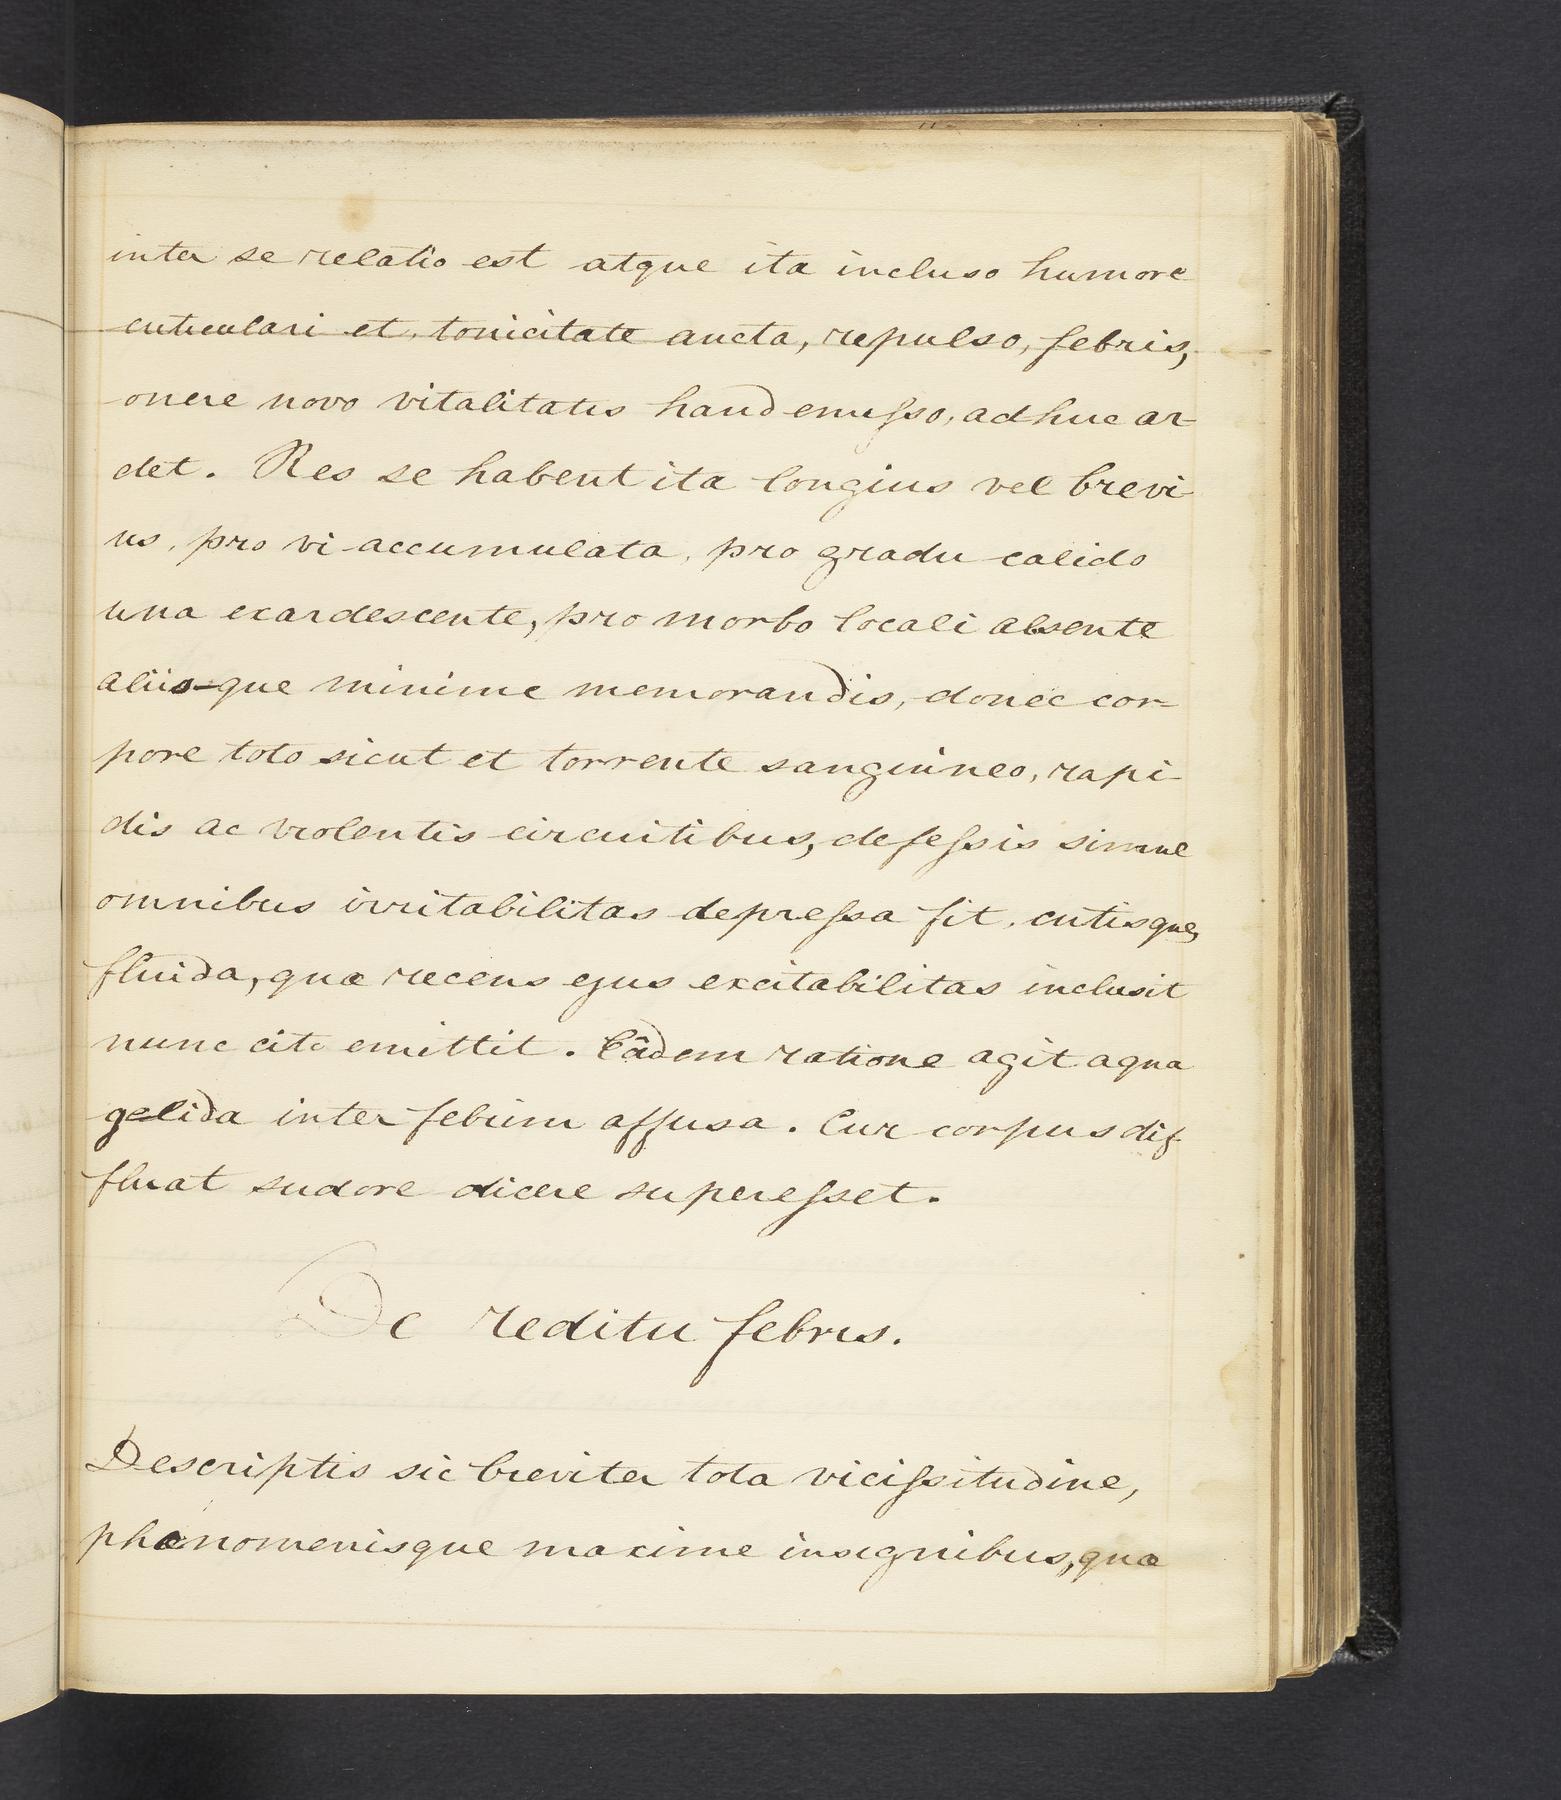 inter se relatio est atque ita incluso humore
cuticulari et, tonicitate aucta, repulso, febris,
onere novo vitalitatis haud emisso, adhuc ar-
det. Res se habent ita longius vel brevi-
us, pro vi accumulata, pro gradu calido
una exardescente, pro morbo locali absente
aliis-que minime memorandis, donec cor-
pore toto sicut et torrente sanguineo, rapi-
dis ac violentis circuitibus, defessis simul
omnibus irritabilitas depressa fit, cutisque,
fluida, quæ recens ejus excitabilitas inclusit
nunc cito emittit. Eâdem ratione agit aqua
gelida inter febrim affusa. Cur corpus dif-
fluat sudore dicere superesset.
De reditu febris.
Descriptis sic breviter tota vicissitudine,
phænomenisque maxime insignibus, quæ